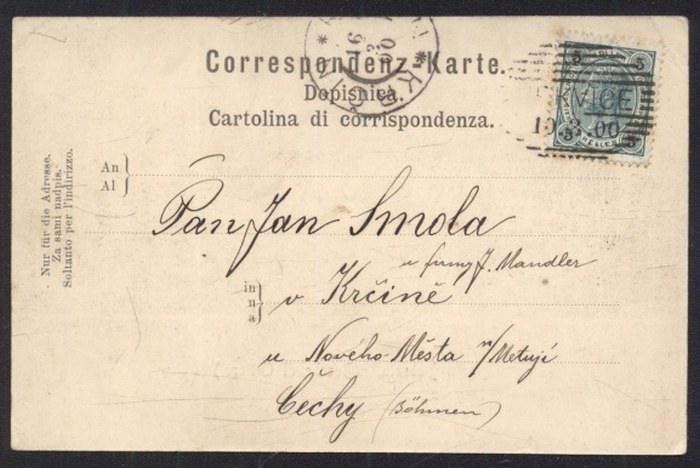 Correspondenz-Karte.
Dopisnica.
Cartolina di corrispondenza.
* KRČIN *
16 3 00
5 5
VICE
10 3 00
5 5
Nur für die Adresse.
Za sami nadpis.
Soltanto per l'indirizzo.
An
Al
Pan Jan Smola
u firmy J. Mandler
in
u
a
v Krčině
u Nového Města n/Metují
Čechy (Böhmen)